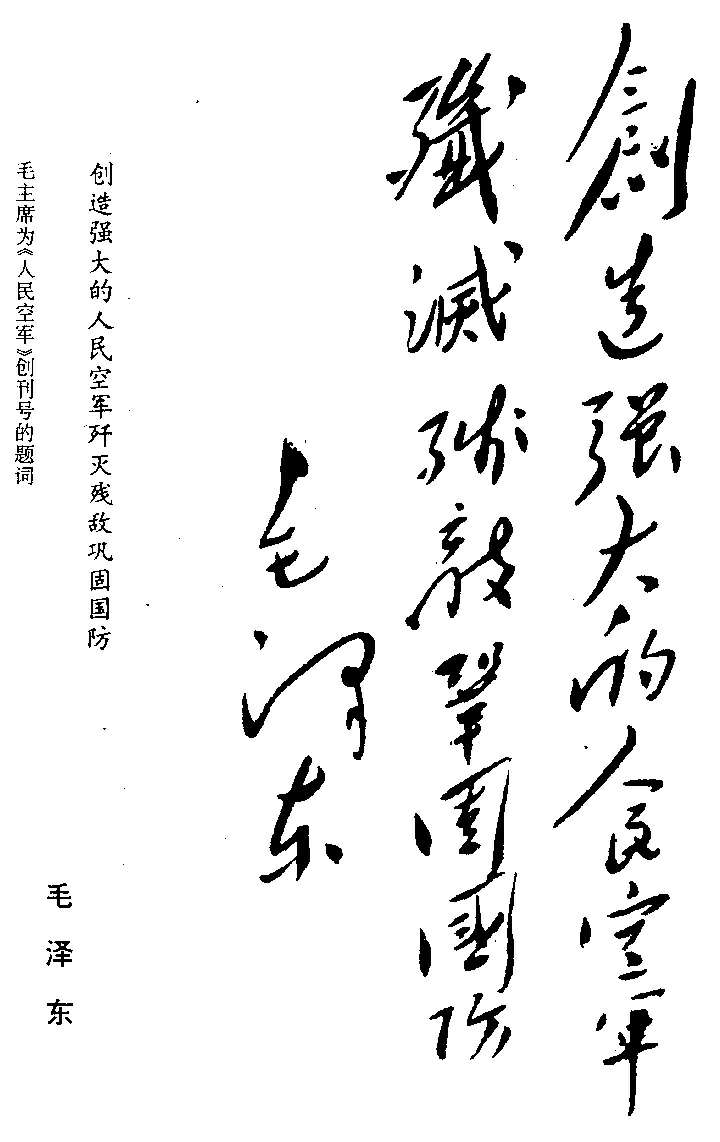 創造强大的人民空軍
殲滅殘敵鞏固國防
毛泽东
创造强大的人民空军歼灭残敌巩固国防
毛主席为《人民空军》创刊号的题词
毛泽东